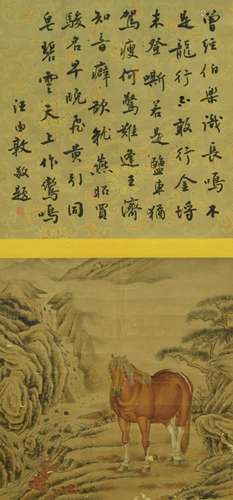 曾經伯樂識長鳴不
是龍行不敢行金埒
未登嘶若是鹽車猶
駕瘦何驚難逢王濟
知音癖欲就燕昭買
駿名早晚飛黃引同
皂碧雲天上作鸞鳴
汪由敦敬題